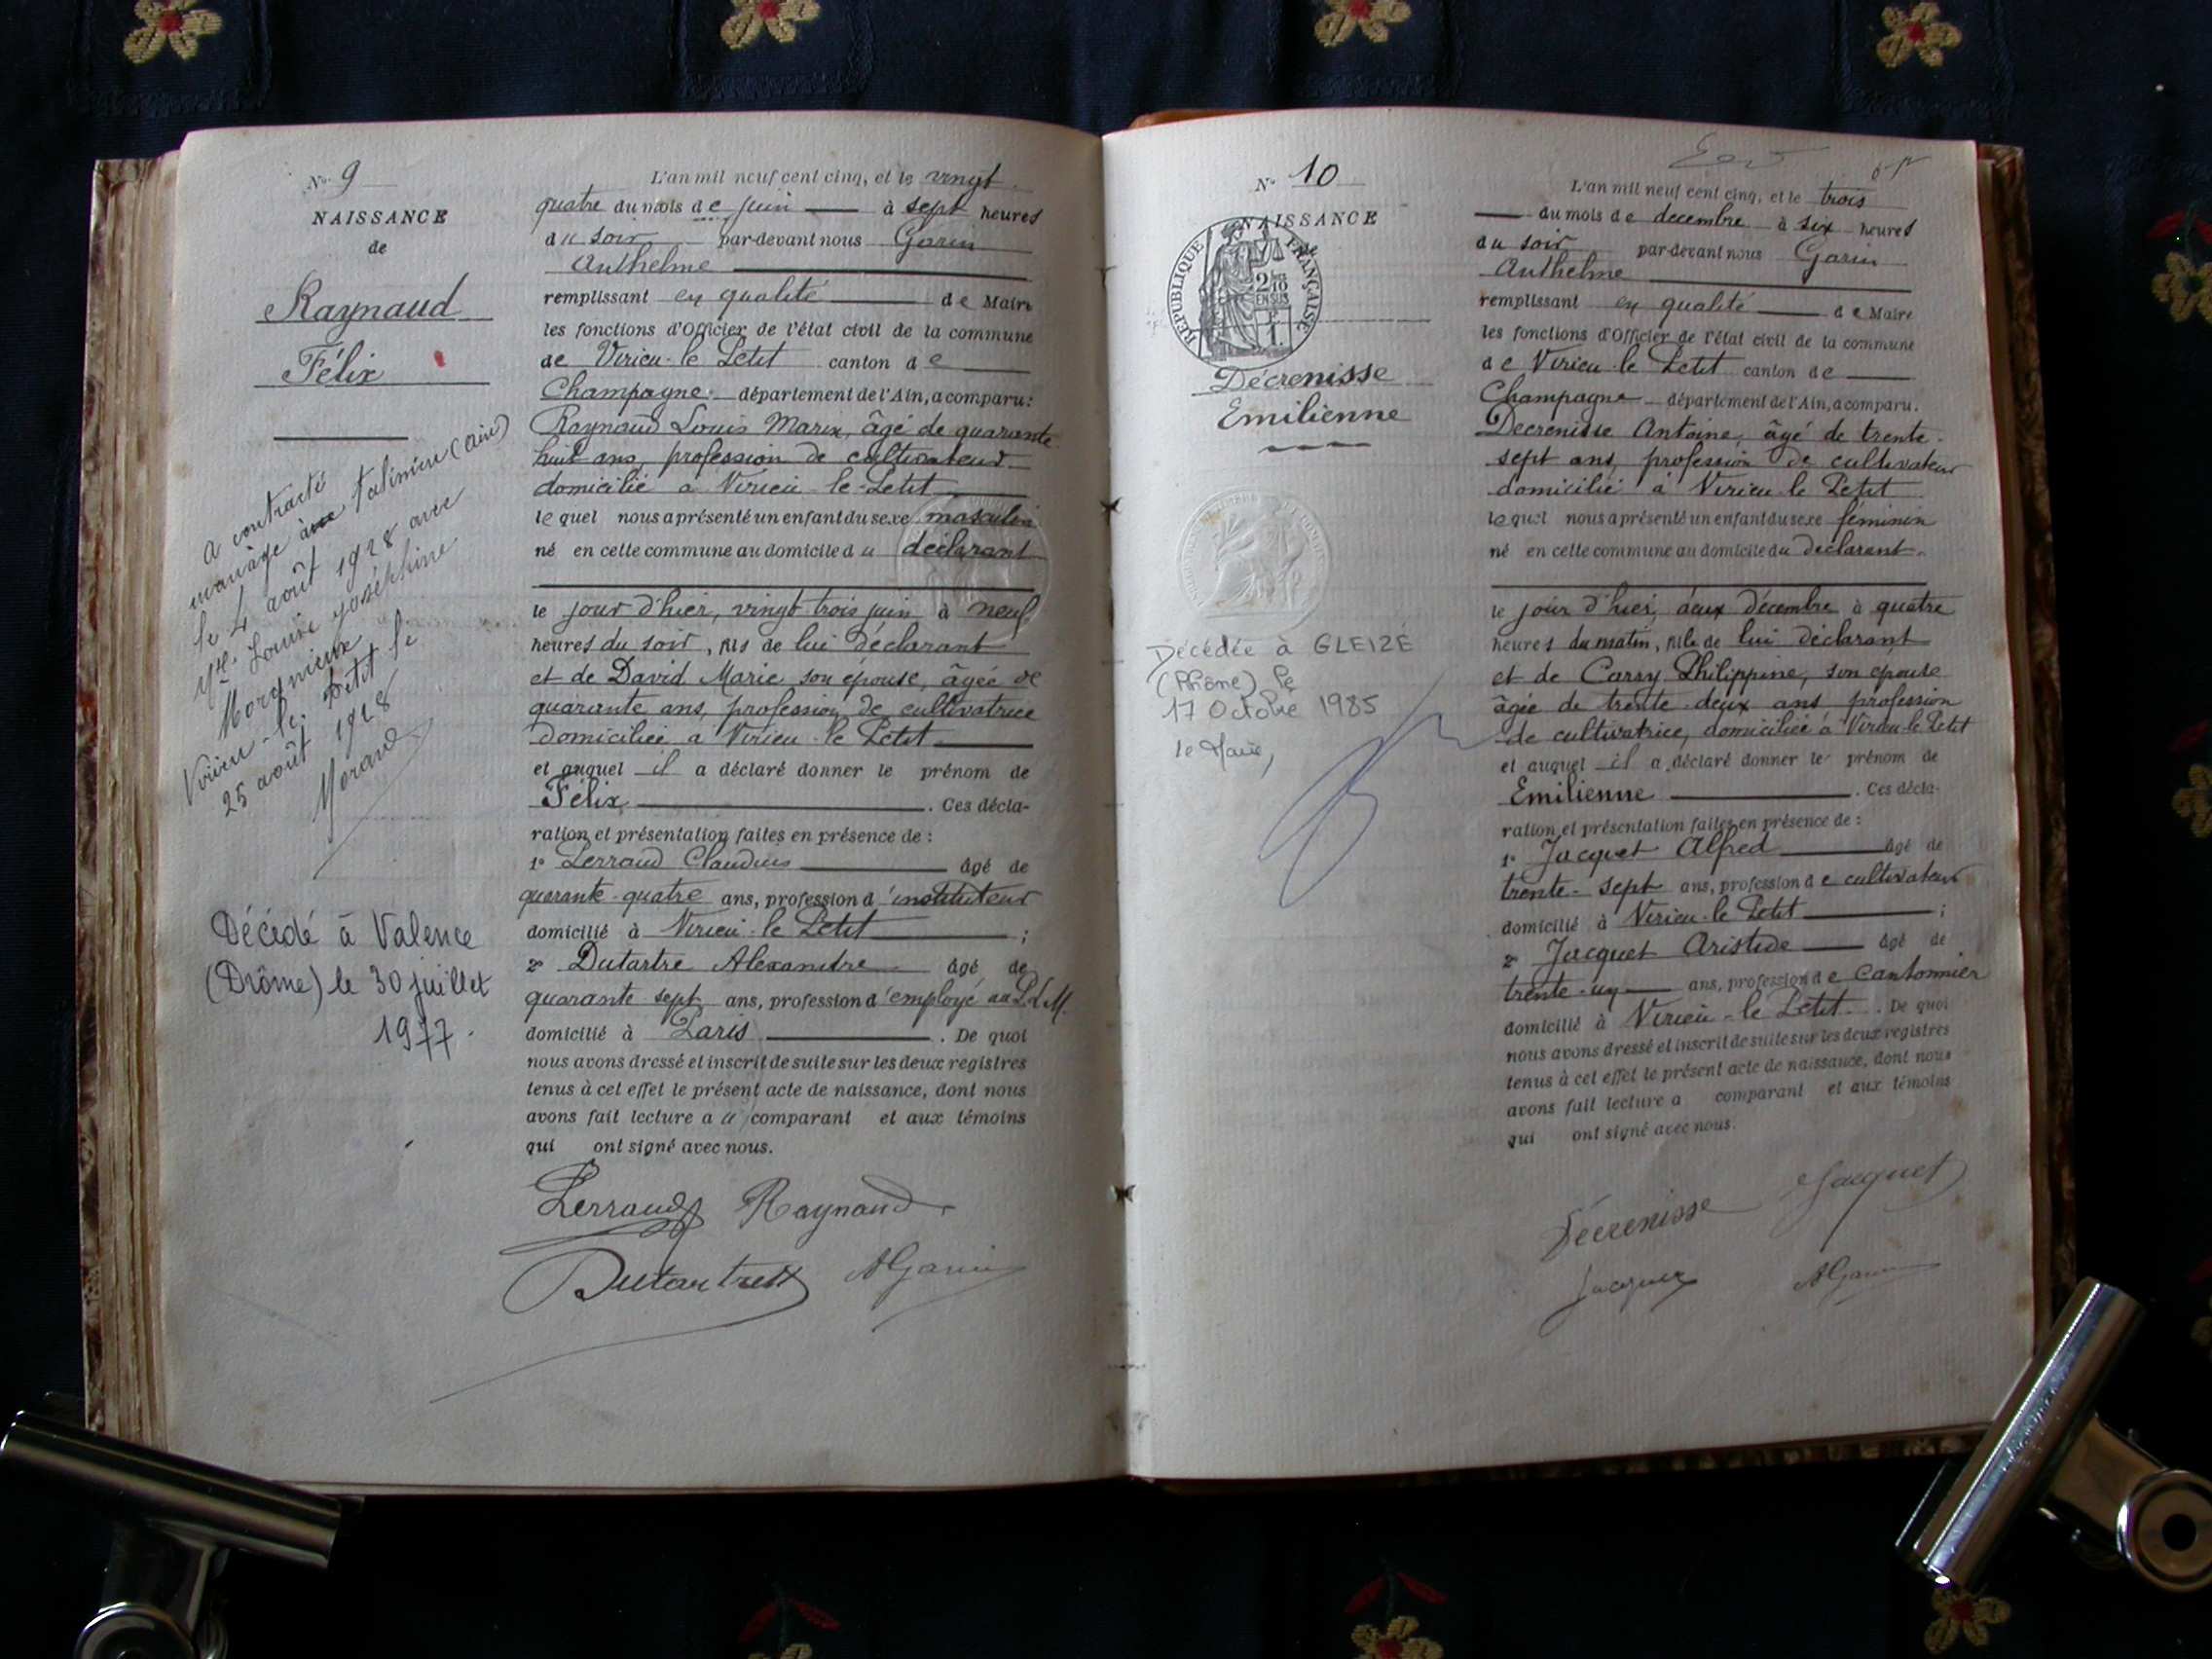 No. 9
NAISSANCE
de
Raynaud
Félix
a contracté
mariage à Talissieu (Ain)
le 4 août 1928 avec
Louise Joséphine
Virieu-le-Petit le
25 août 1928
Décédé à Valence
(Drôme) le 30 juillet
1977.
L'an mil neuf cent cinq, et le vingt
quatre du mois de juin à sept heures
du soir par-devant nous Garin
Anthelme
remplissant en qualité de Maire
les fonctions d'Officier de l'état civil de la commune
de Virieu-le Petit canton de
Champagne département de l'Ain, a comparu:
Raynaud Louis Marie, âgé de quarante
huit ans, profession de cultivateur
domicilié à Virieu-le-Petit
lequel nous a présenté un enfant du sexe masculin
né en cette commune au domicile du déclarant
le jour d'hier, vingt trois juin à neuf
heures du soir, fils de lui déclarant
et de David Marie son épouse, âgée de
quarante ans, profession de cultivatrice
domiciliée à Virieu-le Petit
et auquel il a déclaré donner le prénom de
Félix. Ces décla-
ration et présentation faites en présence de:
1° Perraud Claudius âgé de
quarante-quatre ans, profession d'instituteur
domicilié à Virieu-le Petit;
2° Dutartre Alexandre âgé de
quarante sept ans, profession d'employé au P.L.M.
domicilié à Paris. De quoi
nous avons dressé et inscrit de suite sur les deux registres
tenus à cet effet le présent acte de naissance, dont nous
avons fait lecture au comparant et aux témoins
qui ont signé avec nous.
Perraud Raynaud
Dutartre AGarin
N° 10
NAISSANCE
RÉPUBLIQUE FRANÇAISE
2/10
EN SUS
Décrenisse
Emilienne
Décédée à GLEIZÉ
(Rhône) le
17 Octobre 1985
le Maire,
L'an mil neuf cent cinq, et le trois
du mois de decembre à six heures
du soir par-devant nous Garin
Anthelme
remplissant en qualité de Maire
les fonctions d'Officier de l'état civil de la commune
de Virieu-le Petit canton de
Champagne département de l'Ain, a comparu.
Decrenisse Antoine, âgé de trente-
sept ans, profession de cultivateur
domicilié à Virieu le Petit
lequel nous a présenté un enfant du sexe féminin
né en cette commune au domicile du déclarant.
le jour d'hier, deux décembre à quatre
heures du matin, fille de lui déclarant
et de Carry Philippine, son épouse
âgée de trente-deux ans profession
de cultivatrice, domiciliée à Virieu-le Petit
et auquel il a déclaré donner le prénom de
Emilienne. Ces décla-
ration et présentation faites en présence de:
1° Jacquet Alfred âgé de
trente-sept ans, profession de cultivateur
domicilié à Virieu-le Petit;
2° Jacquet Aristide âgé de
trente-un ans, profession de Cantonnier
domicilié à Virieu-le Petit. De quoi
nous avons dressé et inscrit de suite sur les deux registres
tenus à cet effet le présent acte de naissance, dont nous
avons fait lecture a comparant et aux témoins
qui ont signé avec nous.
Décrenisse Jacquet
Jacquet AGarin